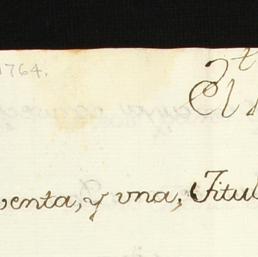 1764.
venta, y vna, Titul